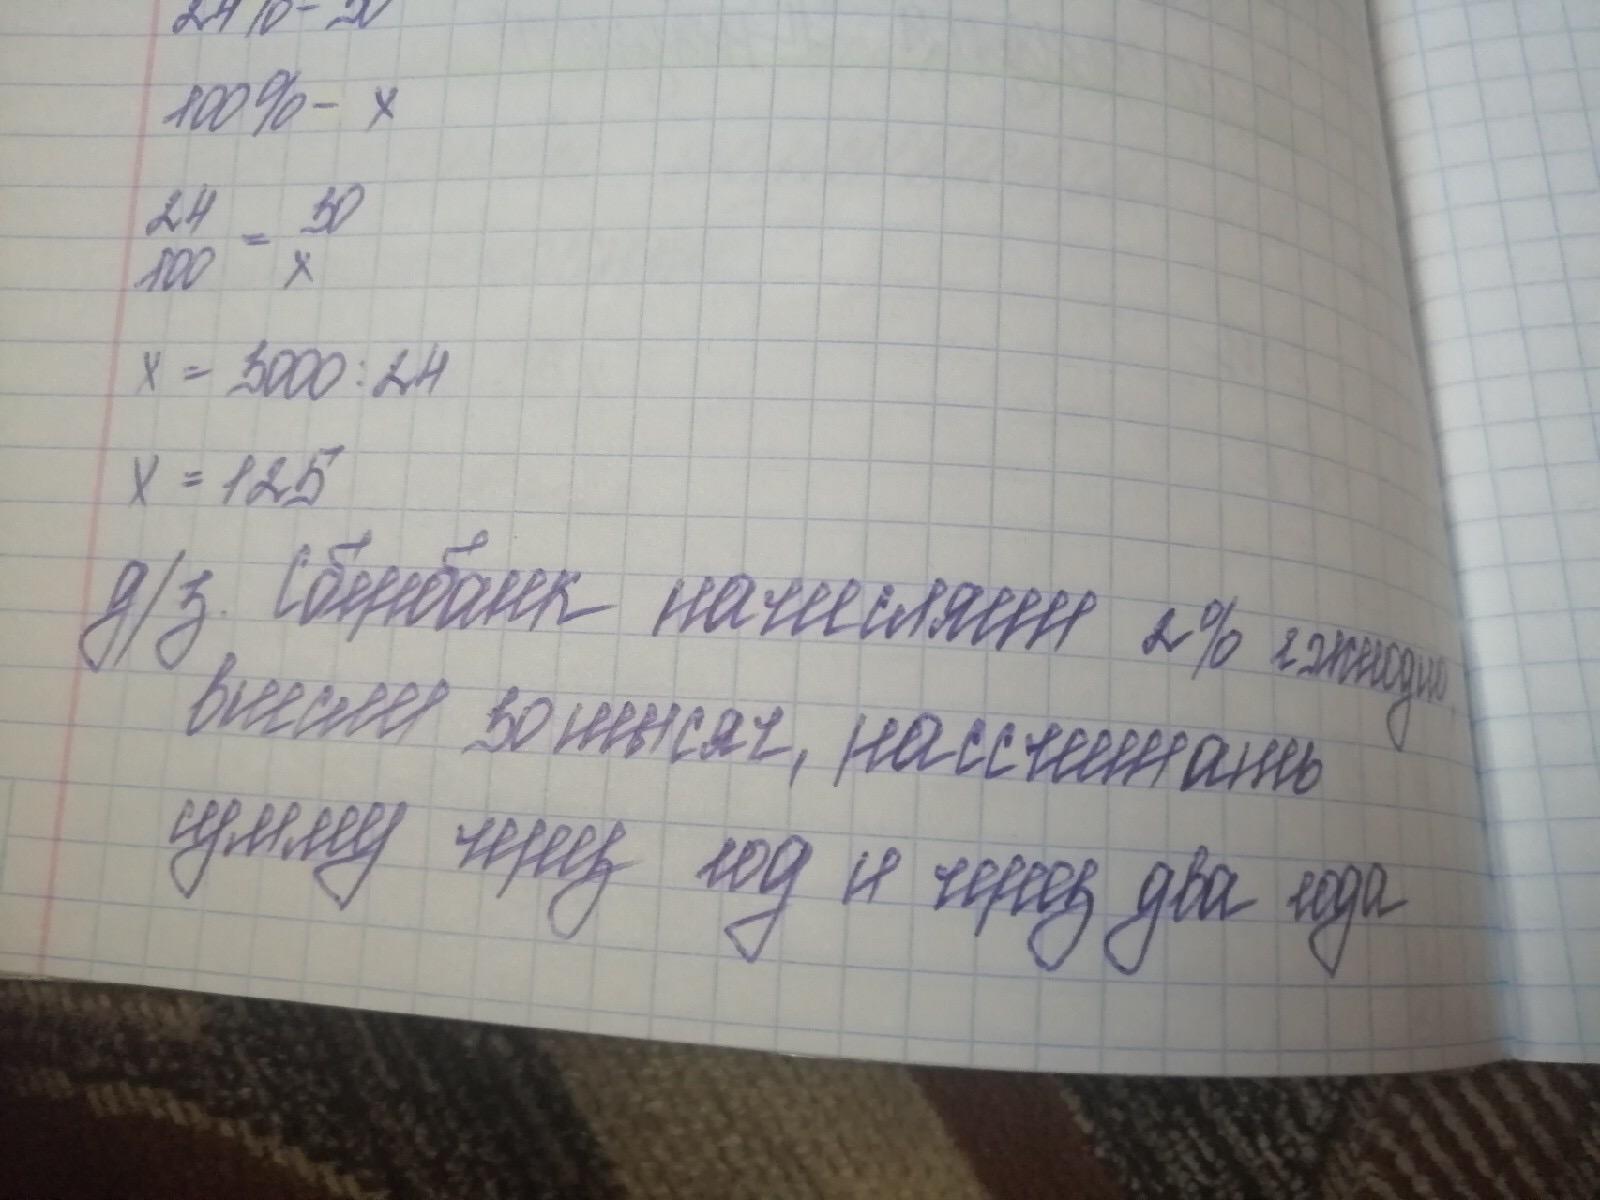 24% - 30
100% - х
24/100 = 30/х
х = 3000 : 24
х = 125
д/з. Сбербанк начисляет 2% ежегодно.
Внесли 30 тысяч, рассчитать
сумму через год и через два года